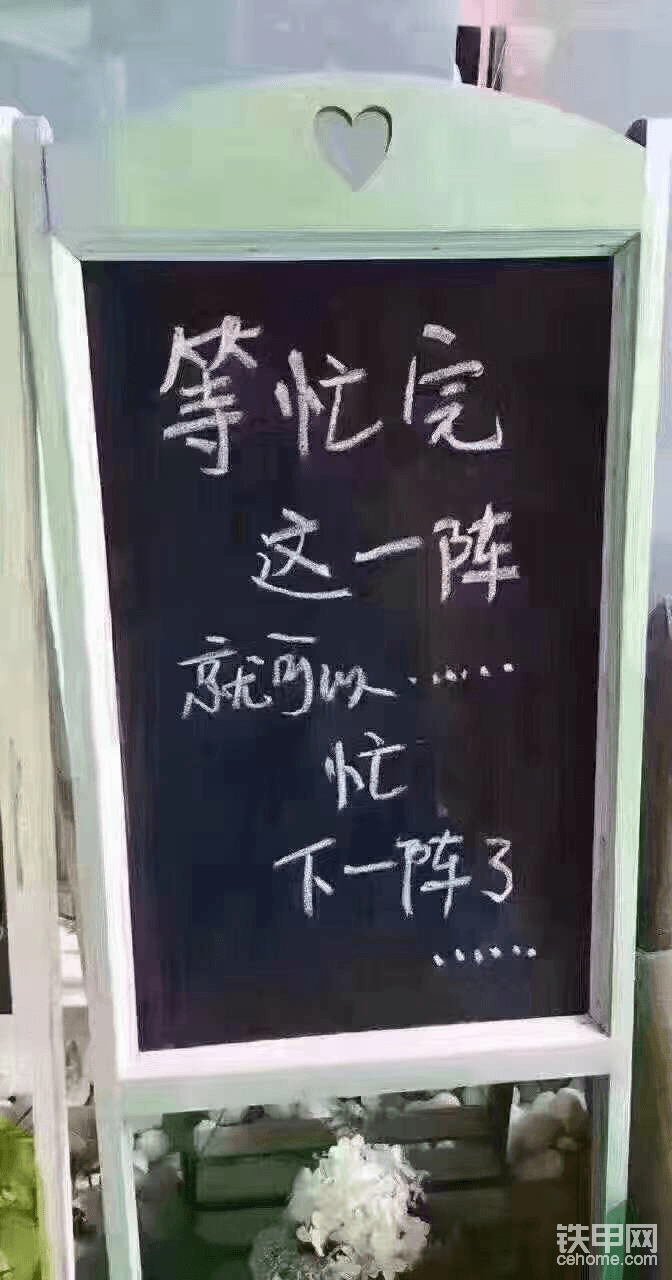 等忙完
这一阵
就可以······
忙
下一阵了
······
铁甲网
cehome.com